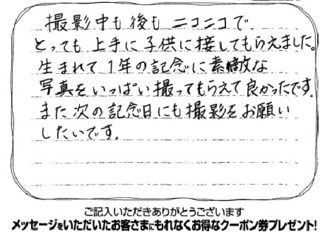 撮影中も後もニコニコで
とっても上手に子供に接してもらえました。
生まれて1年の記念に素敵な
写真をいっぱい撮ってもらえて良かったです。
また次の記念日にも撮影をお願い
したいです。
ご記入いただきありがとうございます
メッセージをいただいたお客さまにもれなくお得なクーポン券プレゼント!